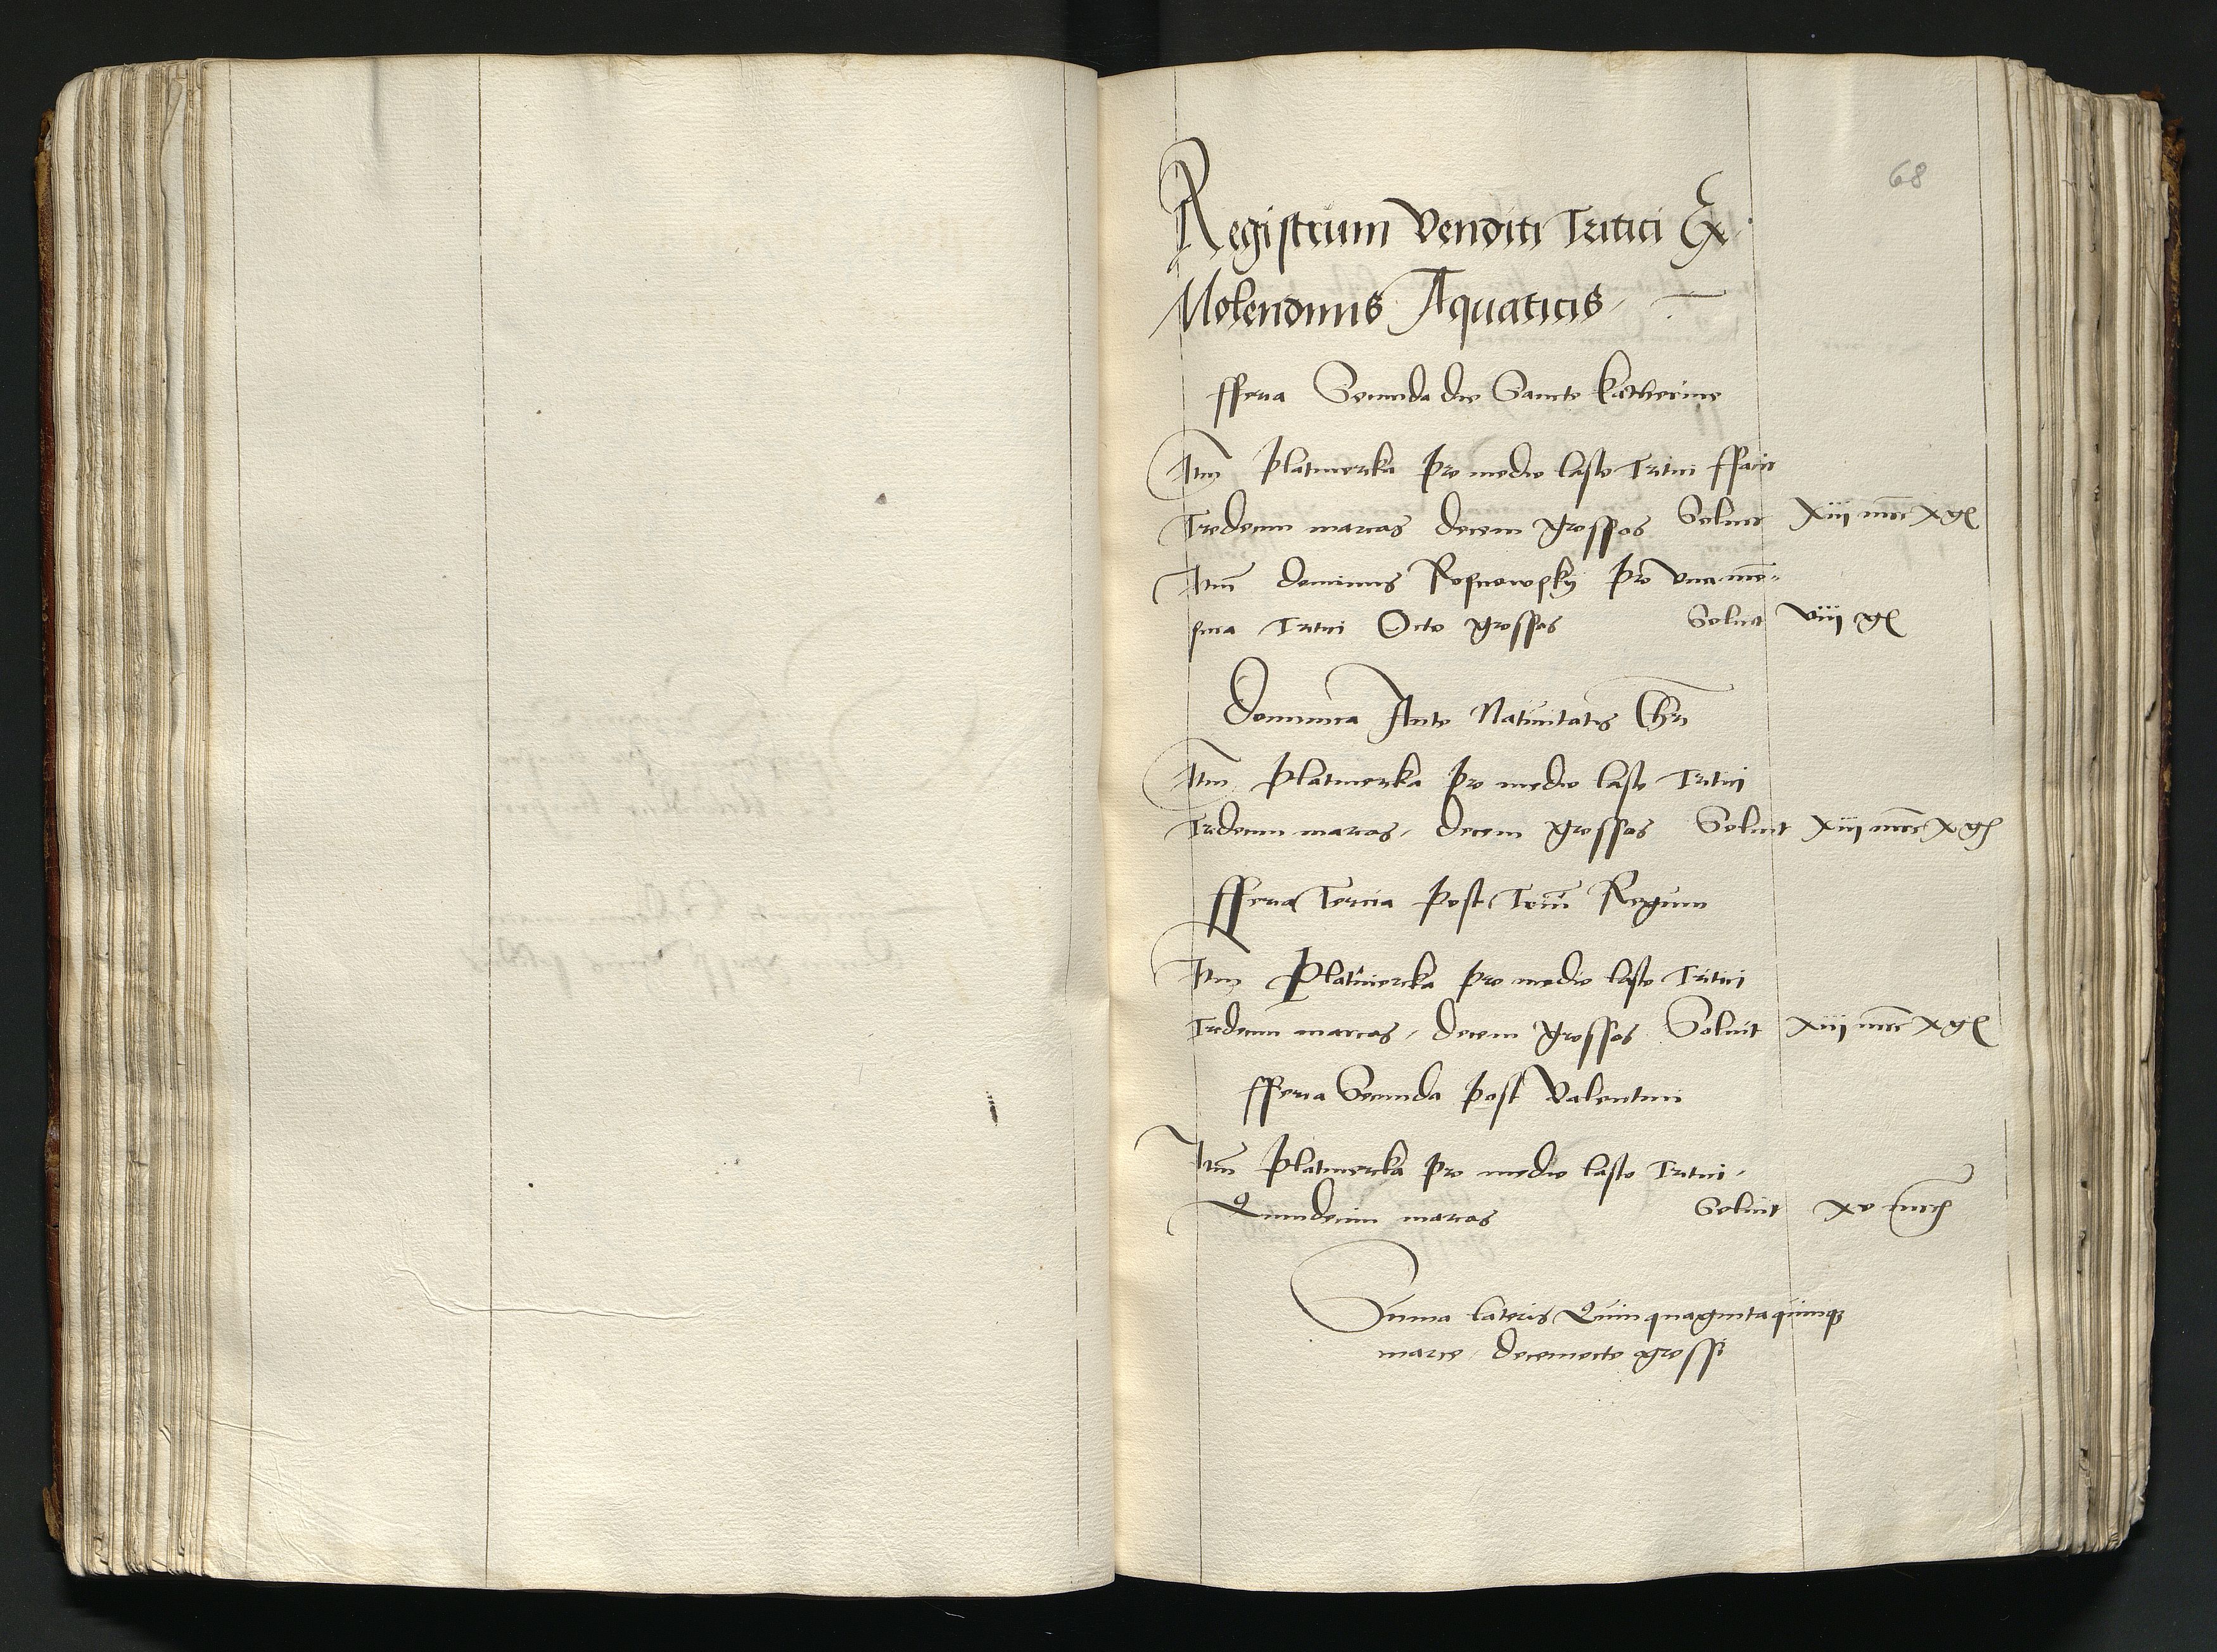 68
Registrum Venditi Tritici Ex
Molendinis Aquaticis
fferia Secunda die Sancte Katherine
Itm Platnerka pro medio lasto Tritici ffacit
Tredecim marcas decem grossos Soluit xiij mrc x gl
Itm dominus Rosnowsky pro vna men-
sura Tritici Octo grossos Soluit viij gl
Dominica Ante Natiuitatis Chri
Itm Platnerka pro medio lasto Tritici
Tredecim marcas, decem grossos Soluit xiij mrc x gl
fferia Tercia Post Trium Regum
Itm Platnierka pro medio lasto Tritici
Tredecim marcas, decem grossos Soluit xiij mrc x gl
fferia Secunda post Valentini
Itm Platnerka pro medio lasto Tritici,
Quindecim marcas Soluit xv mrc
Summa lateris Quinquaginta quinque
marce, decemocto grossi